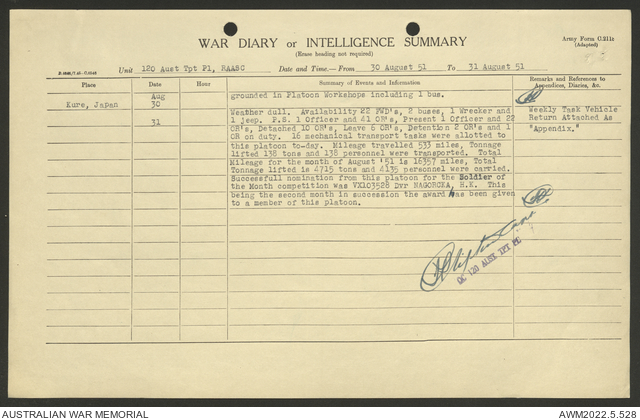 WAR DIARY or INTELLIGENCE SUMMARY
(Erase heading not required)
Army Form C.2118
(Adapted)
Unit 120 Aust Tpt Pl, RAASC Date and Time.—From 30 August 51 To 31 August 51
Place Date Hour Summary of Events and Information Remarks and References to Appendices, Diaries, &c.
Aug grounded in Platoon Workshops including 1 bus.
Kure, Japan 30
Weather dull. Availability 22 FWD's, 2 buses, 1 Wrecker and Weekly Task Vehicle
31 1 jeep. P.S. 1 Officer and 41 OR's, Present 1 Officer and 22 Return Attached As
OR's, Detached 10 OR's, Leave 6 OR's, Detention 2 OR's and 1 "Appendix."
OR on duty. 16 mechanical transport tasks were allotted to
this platoon to-day. Mileage travelled 533 miles, Tonnage
lifted 138 tons and 138 personnel were transported. Total
Mileage for the month of August '51 is 16357 miles, Total
Tonnage lifted is 4715 tons and 4135 personnel were carried.
Successfull nomination from this platoon for the Soldier of
the Month competition was VX103528 Dvr NAGOROKA, H.K. This
being the second month in succession the award has been given
to a member of this platoon.
OC 120 AUST TPT PL
AUSTRALIAN WAR MEMORIAL AWM2022.5.528